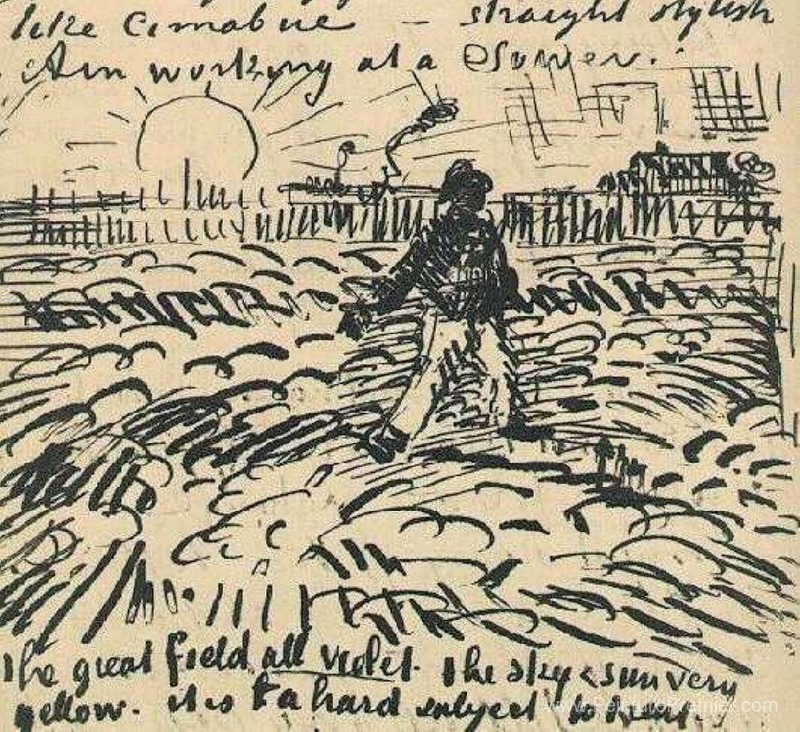 like Cimabue — straight stylish
Am working at a Sower.
The great field all violet. the sky & sun very
yellow. it is a hard subject to treat.